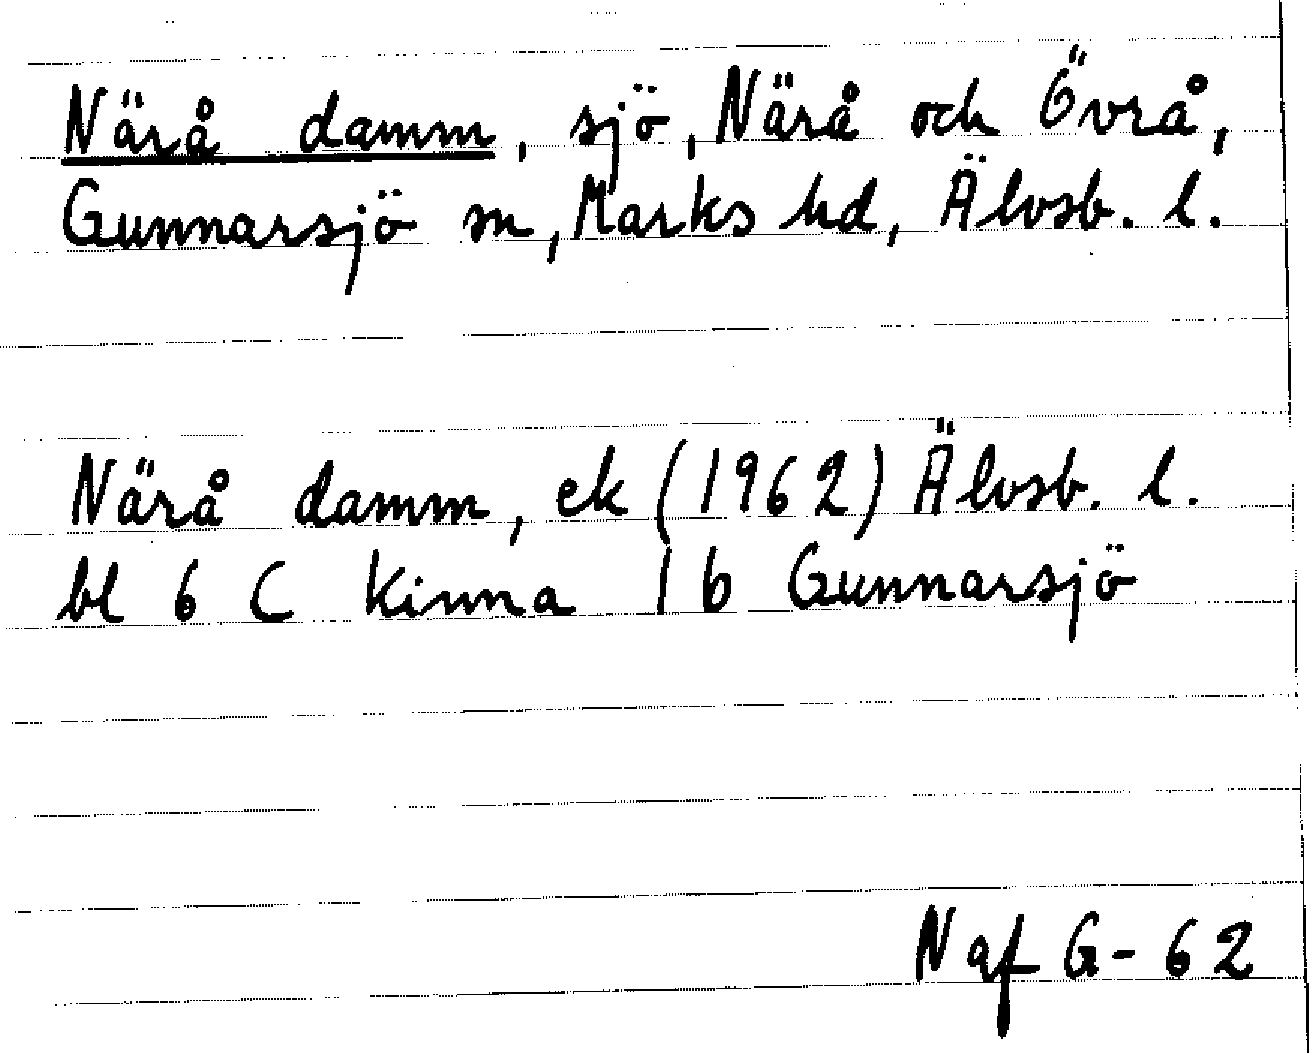 Närå damm, sjö, Närå och Övrå,
Gunnarsjö sn, Marks hd, Älvsb. l.
Närå damm, ek (1962) Älvsb. l.
bl 6 C Kinna 1 b Gunnarsjö
N af G-62